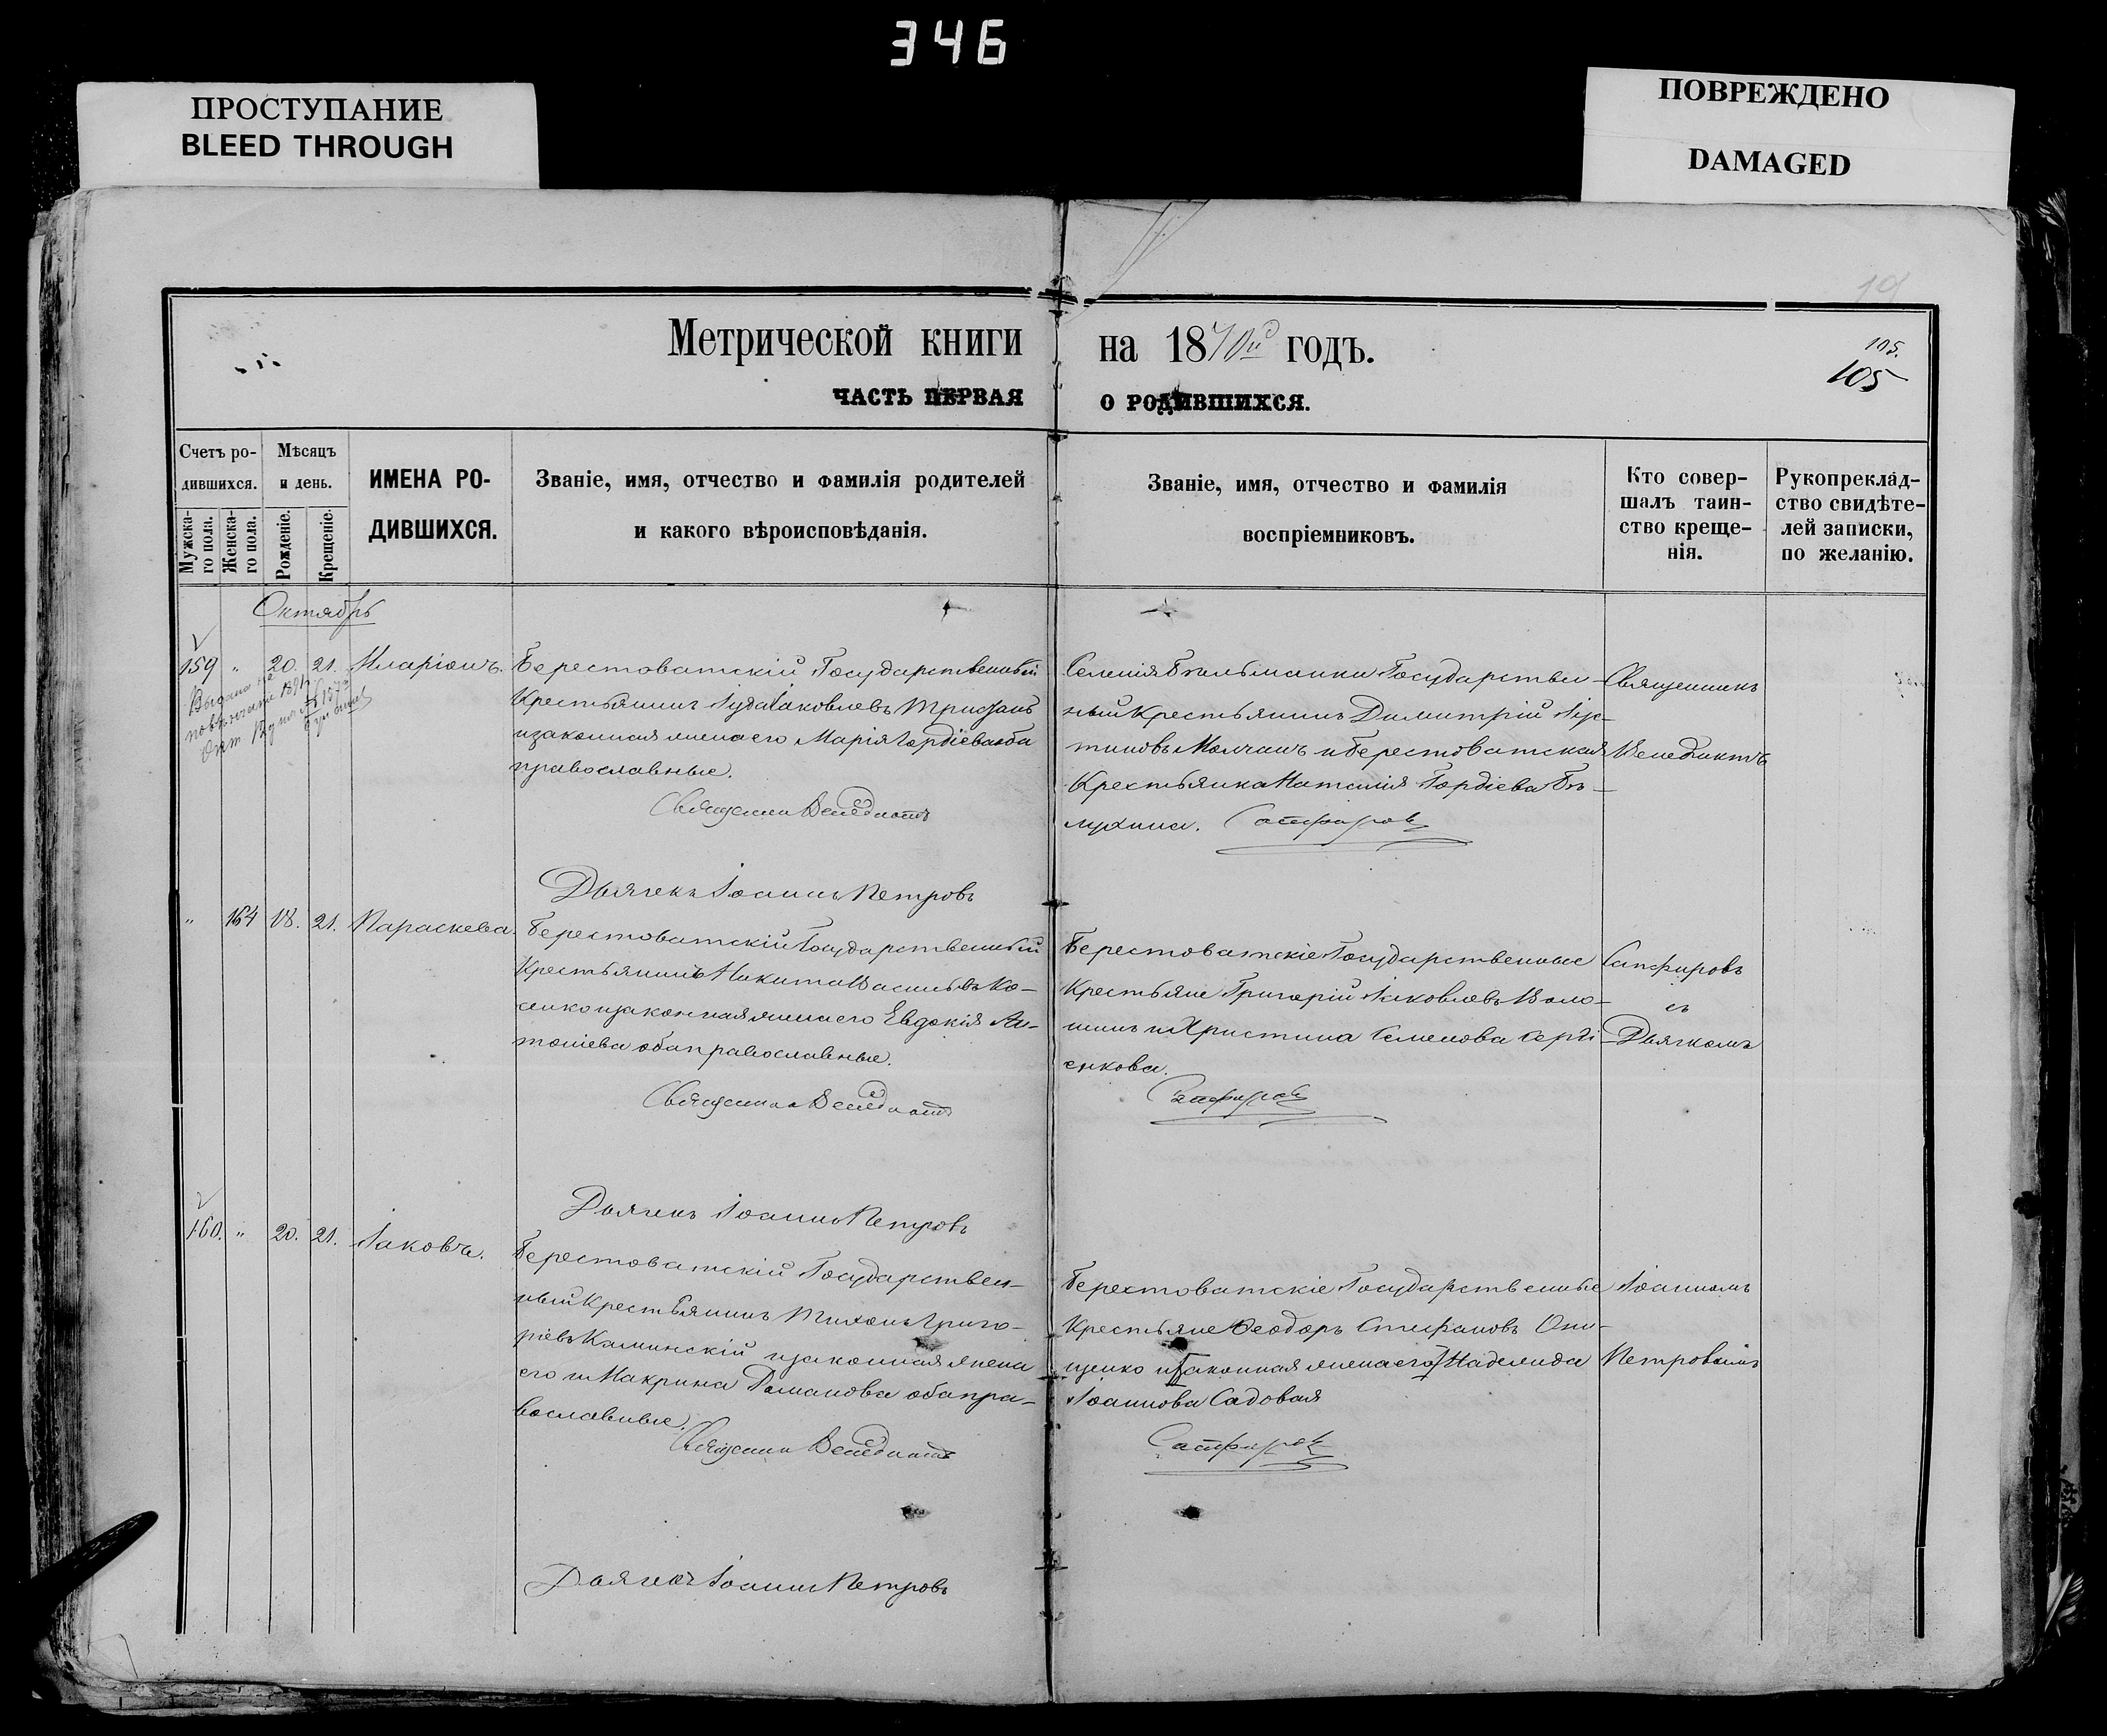 346
ПРОСТУПАНИЕ
BLEED THROUGH
ПОВРЕЖДЕНО
DAMAGED
19
Метрической книги на 1870й годъ.
105.
105
ЧАСТЬ ПЕРВАЯ О РОДИВШИХСЯ.
Счетъ ро-
дившихся.
Мужска-
го пола.
Женска-
го пола.
Мѣсяцъ
и день.
Рожденіе.
Крещеніе.
ИМЕНА РО-
ДИВШИХСЯ.
Званіе, имя, отчество и фамилія родителей
и какого вѣроисповѣданія.
Званіе, имя, отчество и фамилія
воспріемниковъ.
Кто совер-
шалъ таин-
ство креще-
нія.
Рукоприклад-
ство свидѣте-
лей записки,
по желанію.
Октябрь
159 " 20. 21. Иларіонъ.
Берестоватскій Государственный
Крестьянинъ Іуда Іаковлевъ
и законная жена его Марія Гордіева оба
православные.
Священникъ Венедиктъ
Дьячекъ Іоаннъ Петровъ
Селенія Государствен-
ный Крестьянинъ Димитрій Іус-
тиновъ Молчанъ и Берестоватская
Крестьянка Наталія Гордіева Бѣ-
лухина. Сапфировъ
Священникъ
Венедиктъ
" 164 18. 21. Параскева.
Берестоватскій Государственный
Крестьянинъ Никита Васильевъ Ко-
и законная жена его Евдокія Ан-
тоніева оба православные.
Священникъ Венедиктъ
Дьячекъ Іоаннъ Петровъ
Берестоватскіе Государственные
Крестьяне Григорій Іаковлевъ Воло-
шинъ и Христина Семенова Серді-
енкова.
Сапфировъ
Сапфировъ
съ
Дьячкомъ
160. " 20. 21. Іаковъ.
Берестоватскій Государствен-
ный Крестьянинъ Тихонъ Григо-
ріевъ Каминскій и законная жена
его Макрина Романова оба пра-
вославные.
Священникъ Венедиктъ
Дьячекъ Іоаннъ Петровъ
Берестоватскіе Государственные
Крестьяне Ѳеодоръ Стефановъ Они-
щенко и законная жена его Надежда
Іоаннова Садовая
Сапфировъ
Іоанномъ
Петровымъ